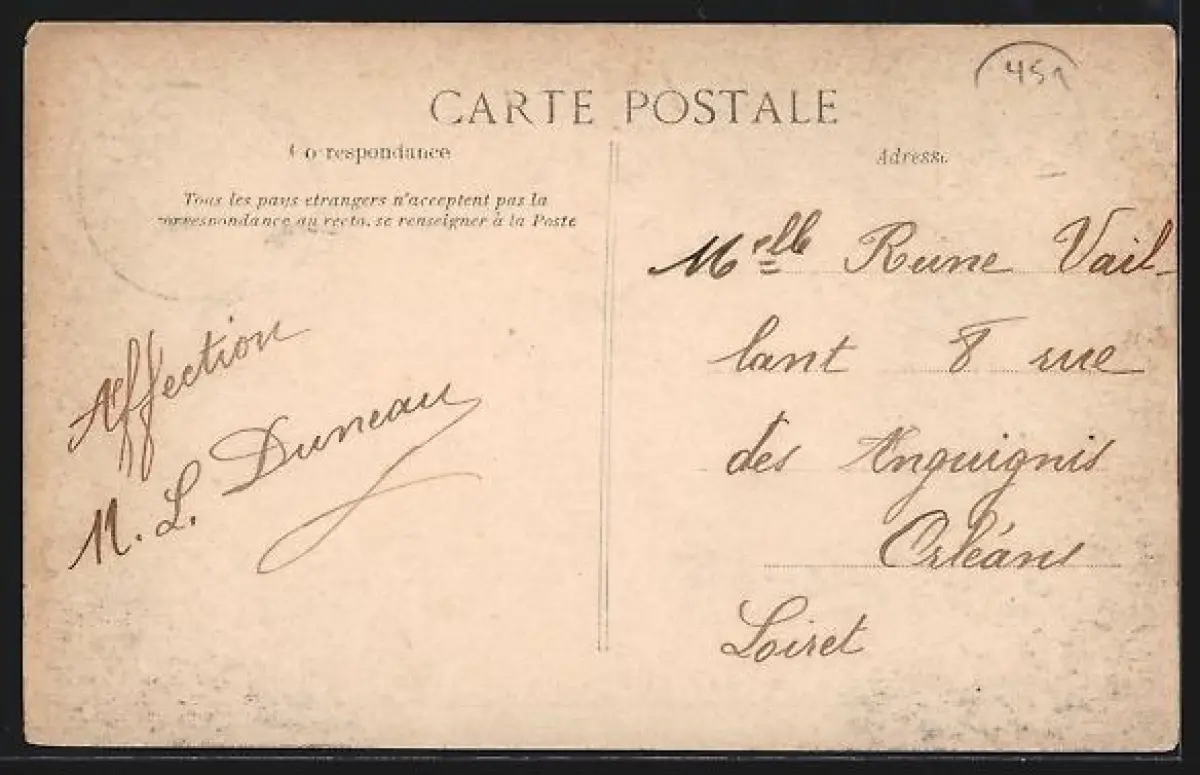 CARTE POSTALE
Correspondance
Tous les pays etrangers n'acceptent pas la
correspondance au recto, se renseigner à la Poste
Affection
M. L. Duneau
Adresse
Melle Reine Vail-
lant 8 rue
des Anguignis
Orléans
Loiret